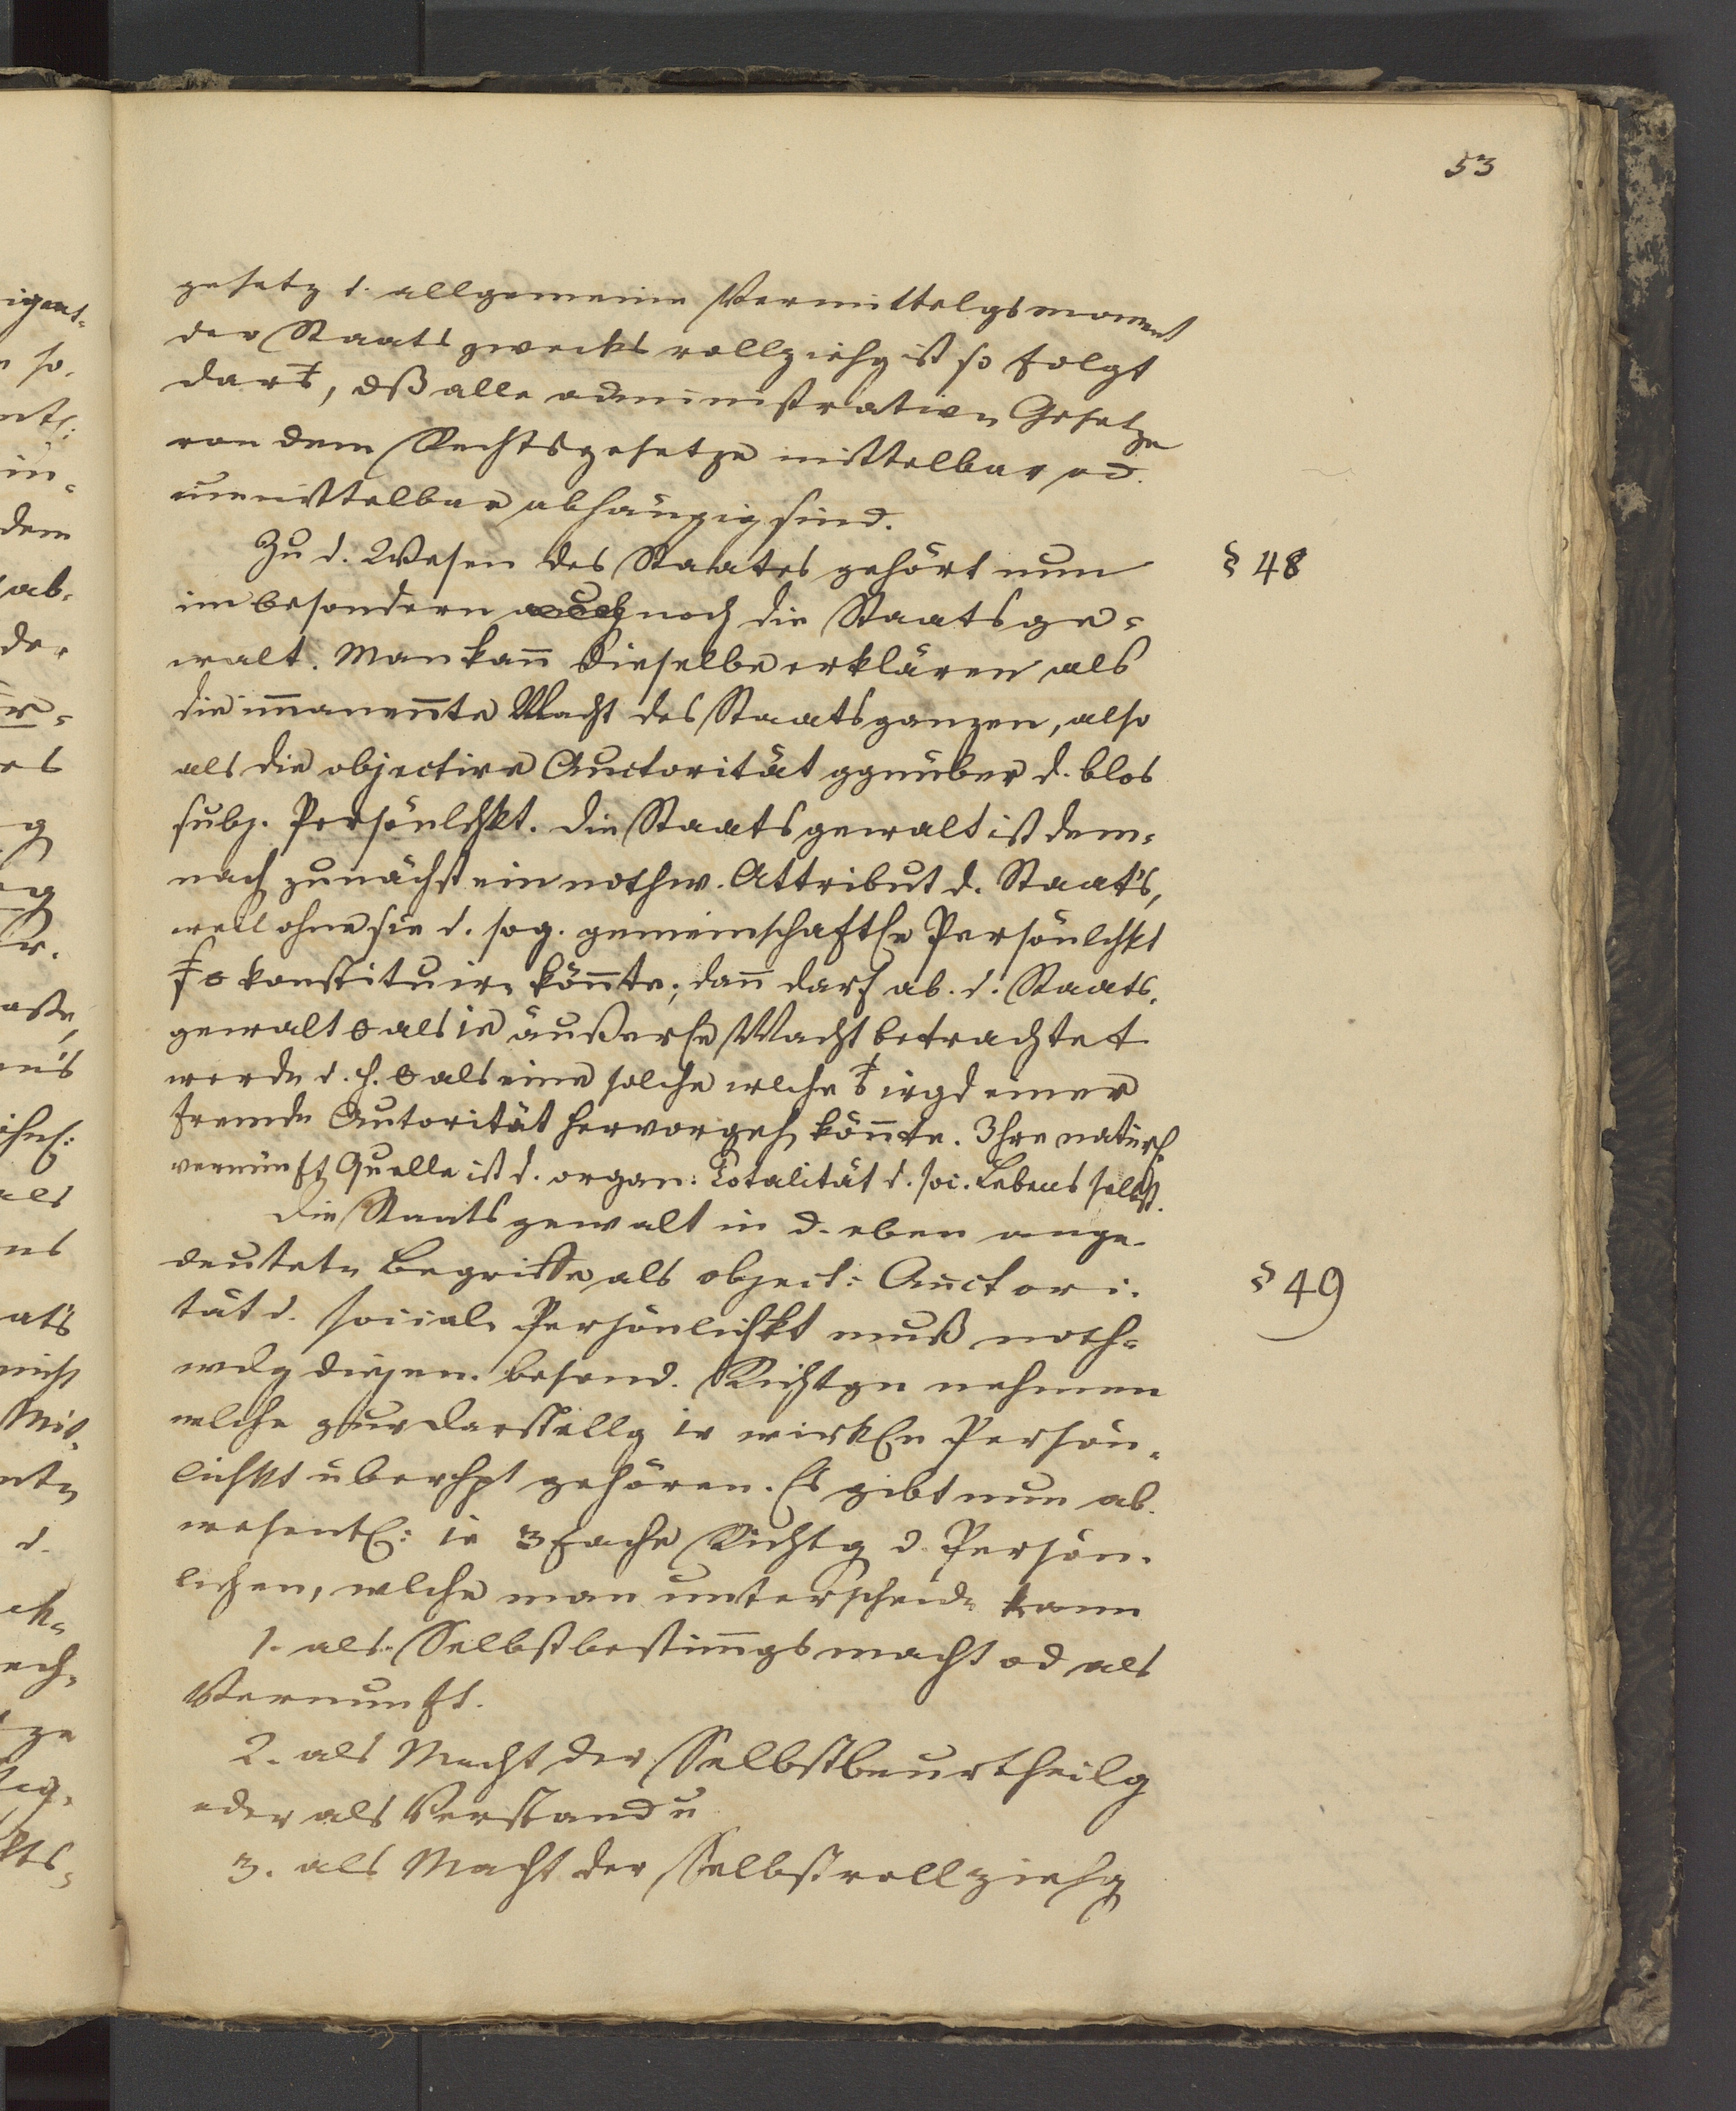 53
gesetz d. allgemeine Vermittelgsmoment
der Staatszwecksvollziehg ist so folgt
dars, dß alle administrativen Gesetze
von dem Rechtsgesetze mittelbar od.
unmittelbar abhängig sind.
Zu d. Wesen des Staates gehört nun
§ 48
im besondern auch noch die Staatsge=
walt. Man kann dieselbe erklären als
die immanente Macht des Staatsganzen, also
als die objective Auctorität ggnüber d. blos
subj. Persönlchkt. Die Staatsgewalt ist dem=
nach zunächst ein nothw. Attribut d. Staats,
weil ohne sie d. sog. gemeinschaftle Persönlchkt
konstituire könnte; dann darf ab. d. Staats=
gewalt 0 als ie äußerle Macht betrachtet
werde d. h. 0 als eine solche wlche irgd einer
fremde Autorität hervorgeh könnte. Ihre natürl
vernünft Quelle ist d. organ: Totalität d. soc. Lebens selbst.
Die Staatsgewalt in d. eben ange=
deutete Begriffe als object: Auctori=
§ 49
tät d. social. Persönlichkt muß noth=
wdg diejen. besond. Richtgn nehmen
welche zur Darstellg ir wirkln Persön=
lichkt überhpt gehören. Es gibt nun ab.
wesentl: ie 3fache Richtg d. Persön=
lichen, wlche man unterscheide kann
1. als Selbstbestimmgsmacht od als
Vernunft.
2. als Macht der Selbstbeurtheilg
oder als Verstand u
3. als Macht der Selbstvollziehg